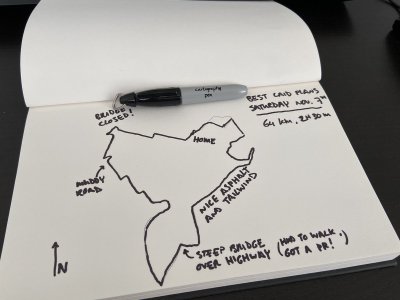 cartography
pen
BRIDGE
CLOSED!
BEST LAID PLANS
SATURDAY NOV. 7TH
64 km, 2H 30 M
HOME
MUDDY
ROAD
NICE ASPHALT
AND TAILWIND
STEEP BRIDGE
OVER HIGHWAY
(HAD TO WALK.
GOT A PR!)
N